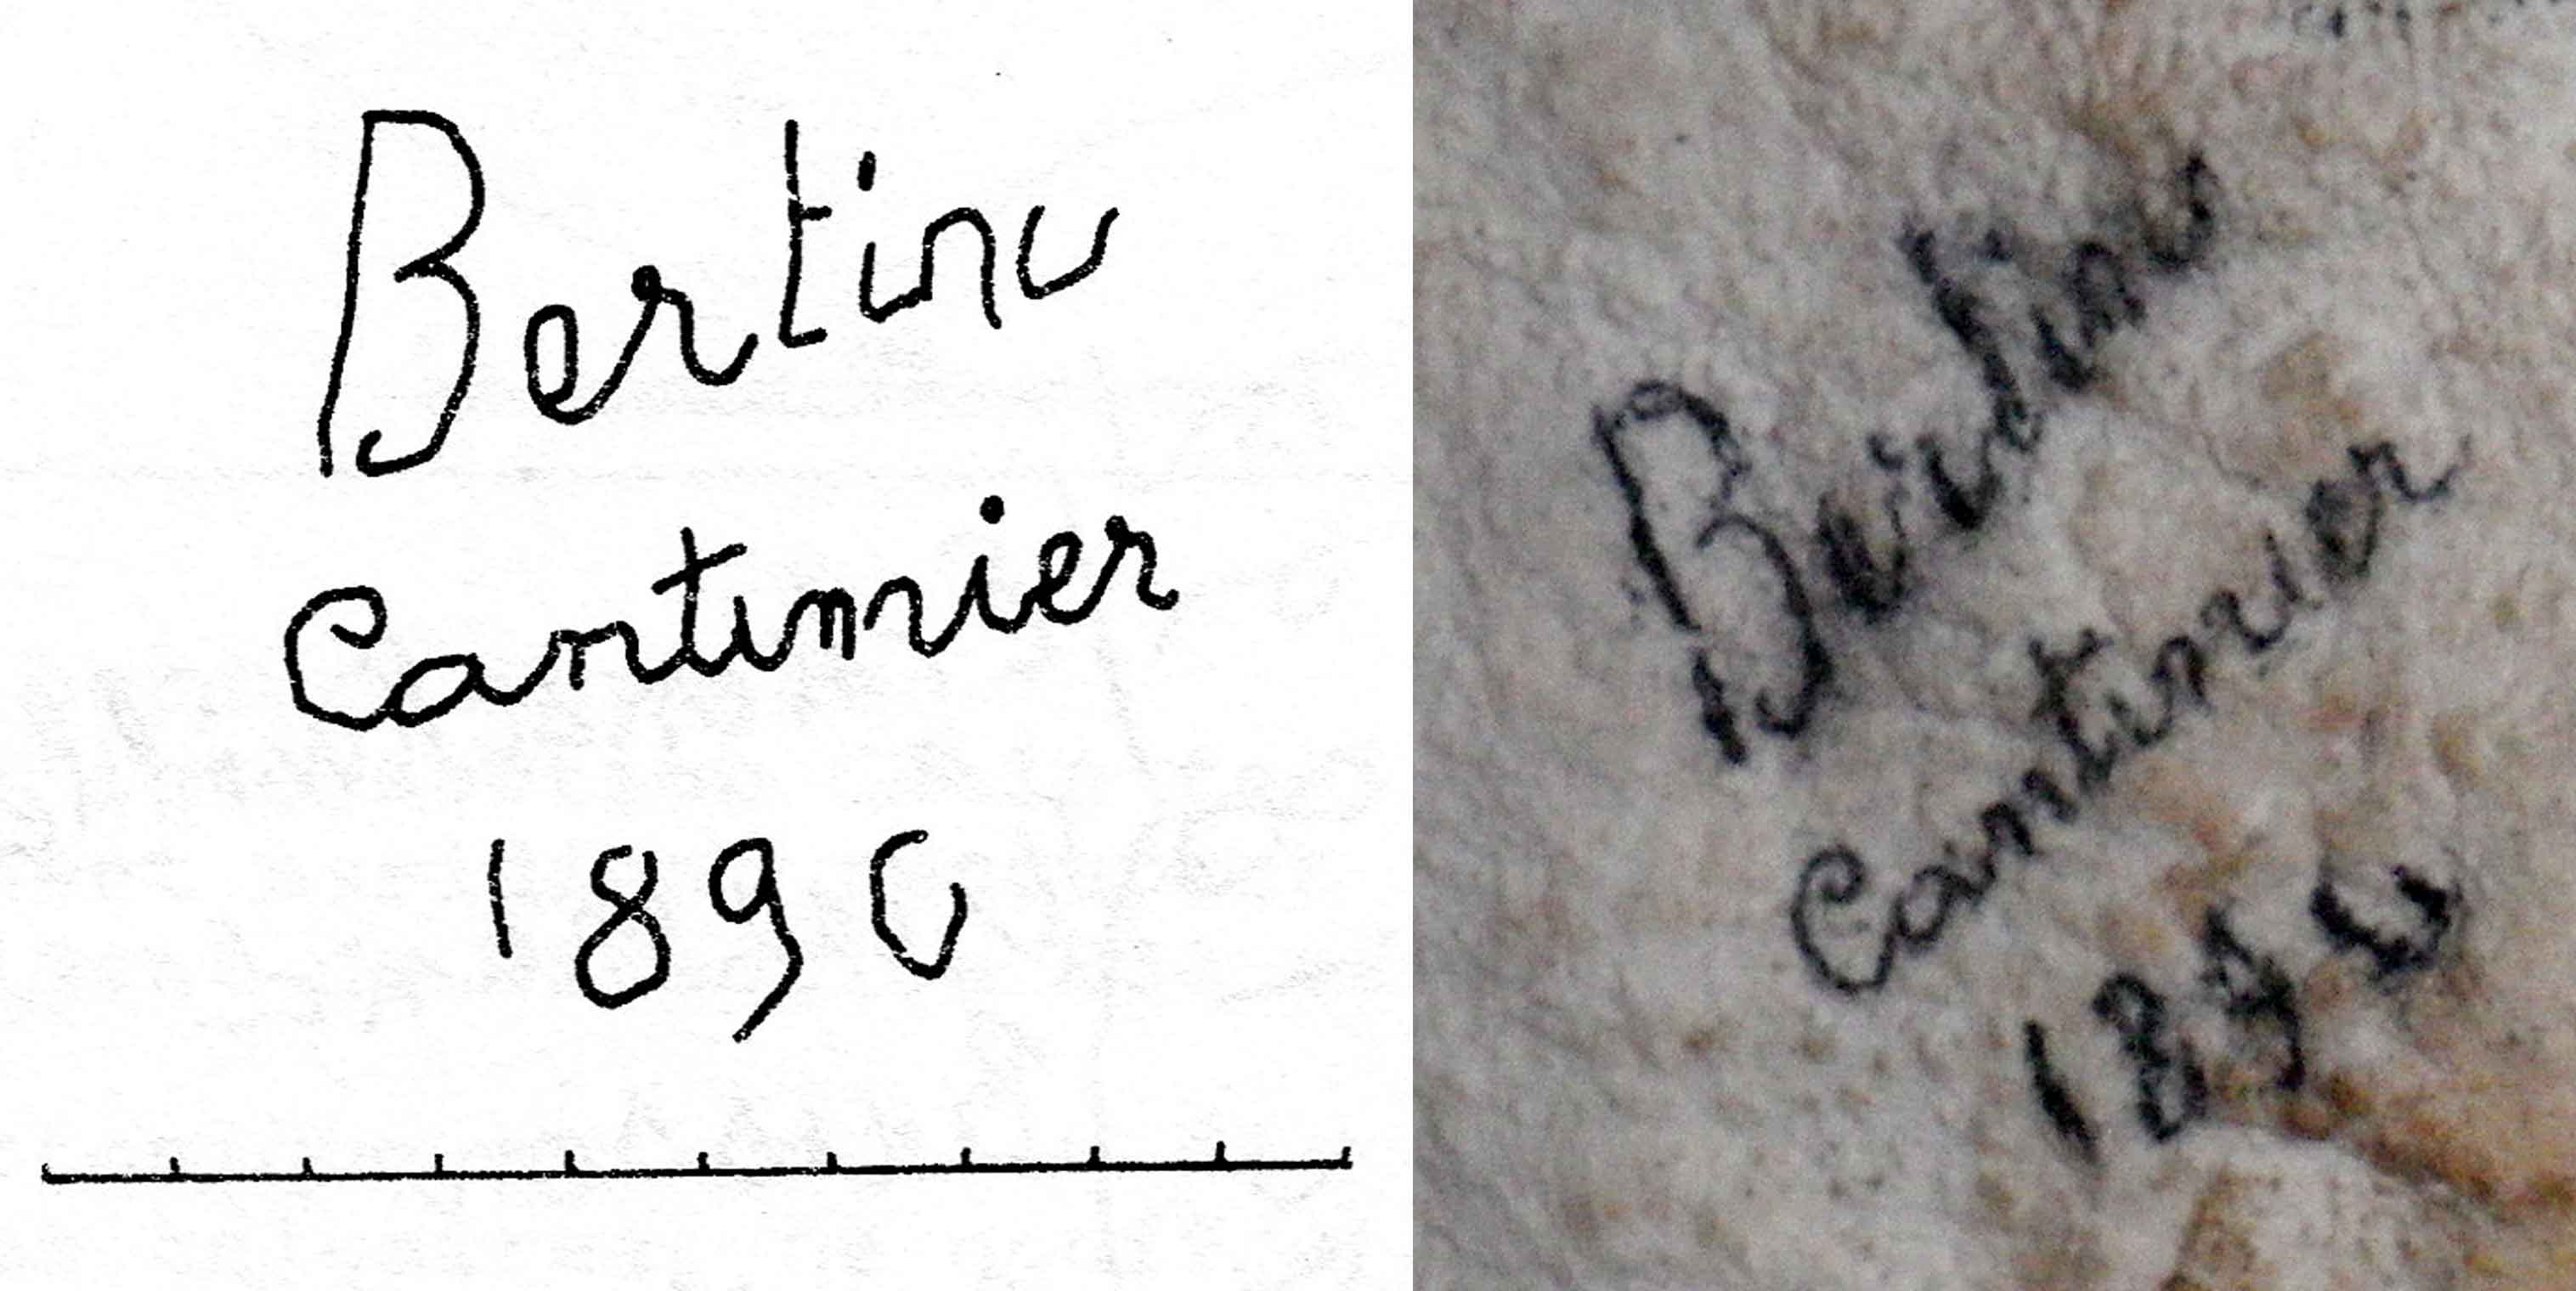 Bertino
Cantinier
1890
Bertino
Cantinier
1890